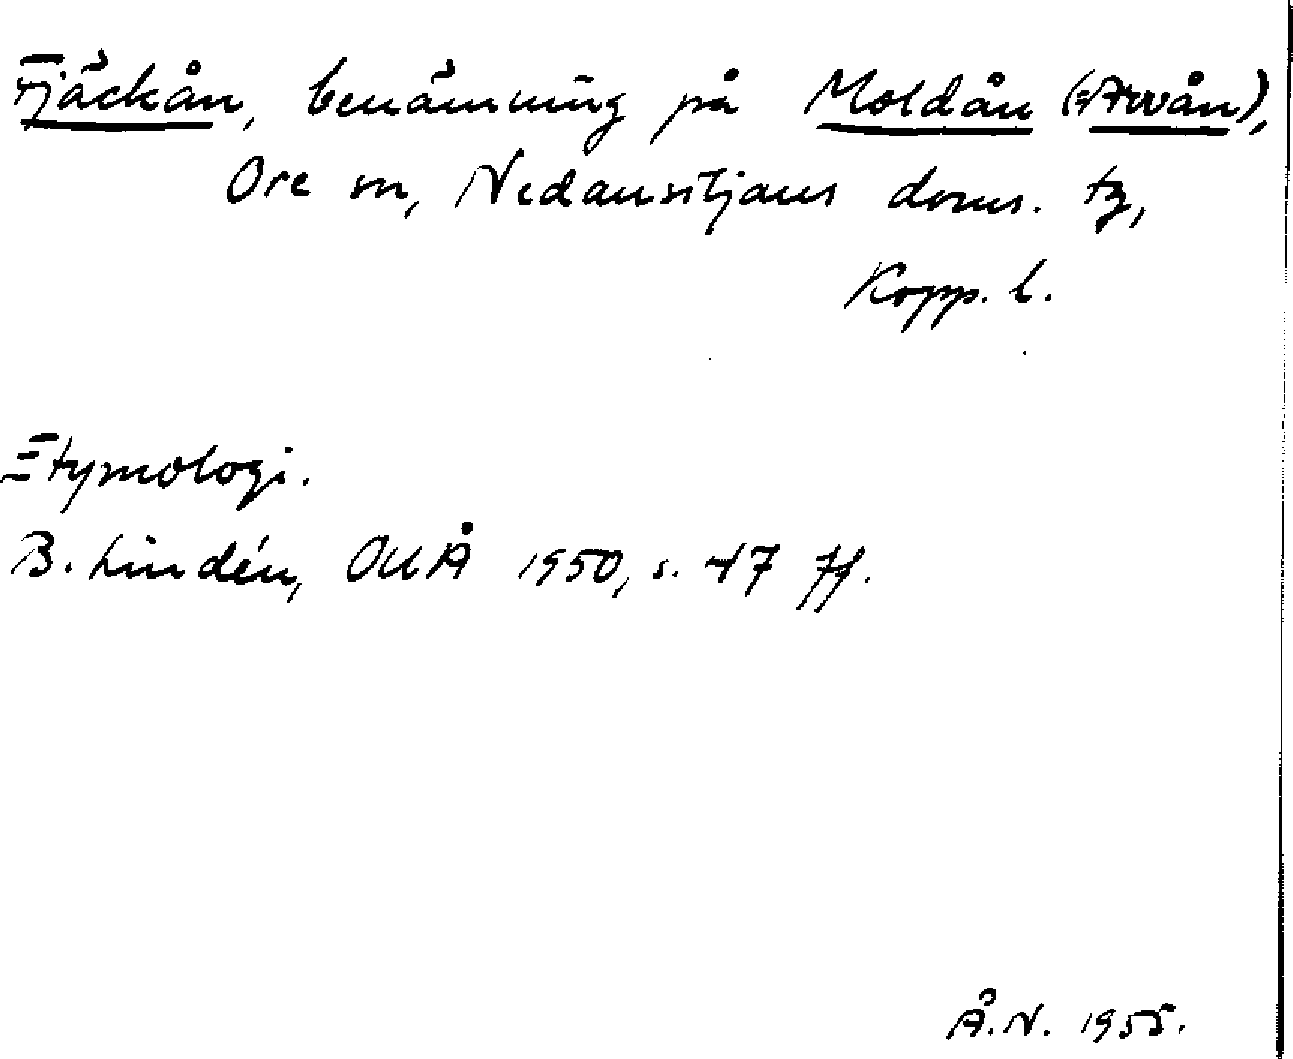 Fjäckån, benämning på Moldån (=Arvån),
Ore sn, Nedansiljans doms. tg,
Kopp. l.
Etymologi.
B. Lindén, OUÅ 1950, s. 47 ff.
Å.N. 1955.